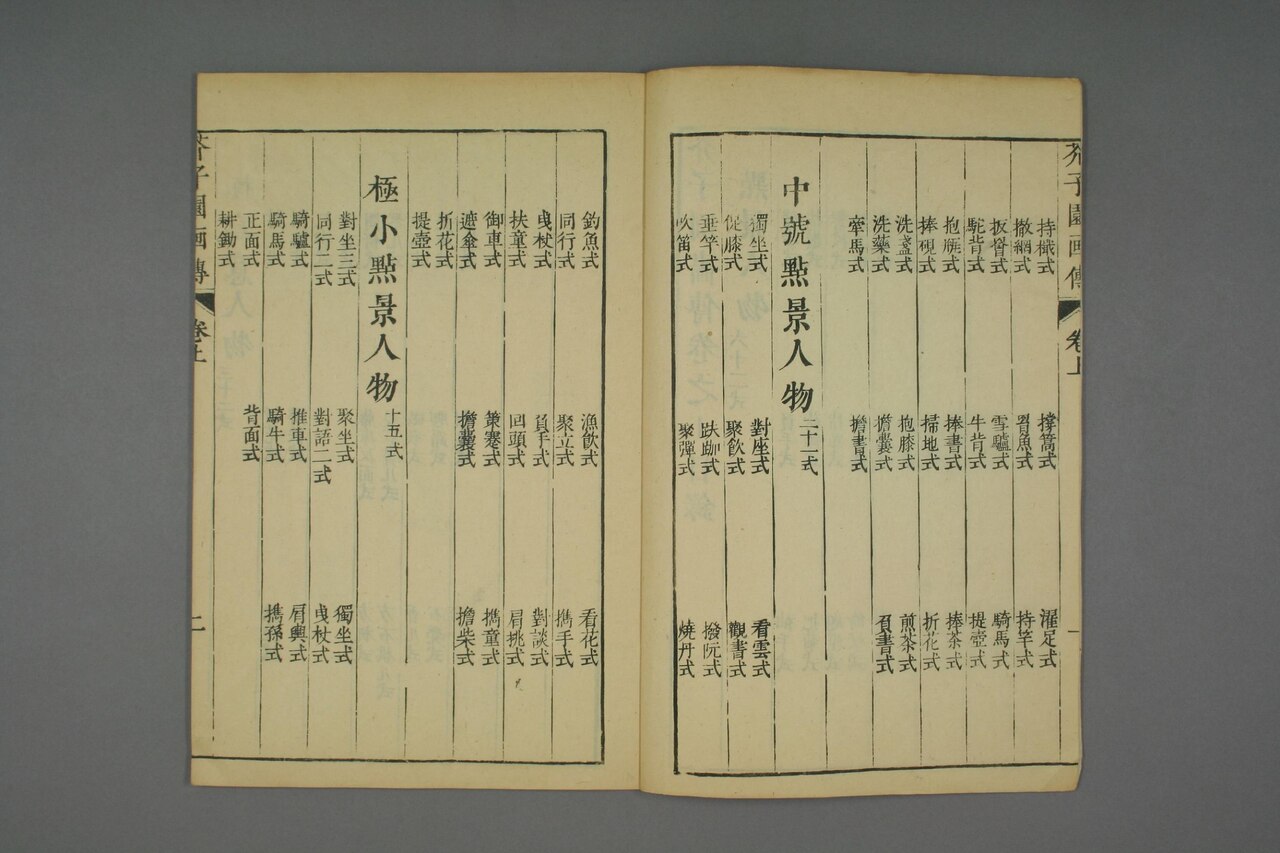 芥子園画傳 卷上 一
持檝式 撐篙式 濯足式
撒網式 罾魚式 持竿式
扳罾式 雪驢式 騎馬式
駝背式 牛背式 提壺式
抱瓶式 捧書式 捧茶式
捧硯式 掃地式 折花式
洗盞式 抱膝式 煎茶式
洗藥式 擔囊式 負書式
牽馬式 擔書式
中號點景人物 二十一式
獨坐式 對座式 看雲式
促膝式 聚飲式 觀書式
垂竿式 趺跏式 撥阮式
吹笛式 聚彈式 燒丹式
釣魚式 漁飲式 看花式
同行式 聚立式 擕手式
曳杖式 負手式 對談式
扶童式 回頭式 肩挑式
御車式 策蹇式 擕童式
遮傘式 擔囊式 擔柴式
折花式
提壺式
極小點景人物 十五式
對坐三式 聚坐式 獨坐式
同行二式 對語二式 曳杖式
騎驢式 推車式 肩輿式
騎馬式 騎牛式 擕孫式
正面式 背面式
耕鋤式
芥子園画傳 卷上 二